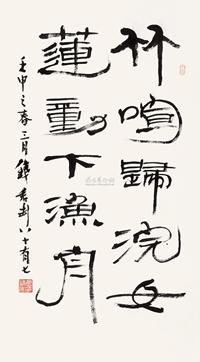 竹喧歸浣女
蓮動下漁舟
壬申之春三月
八十有七